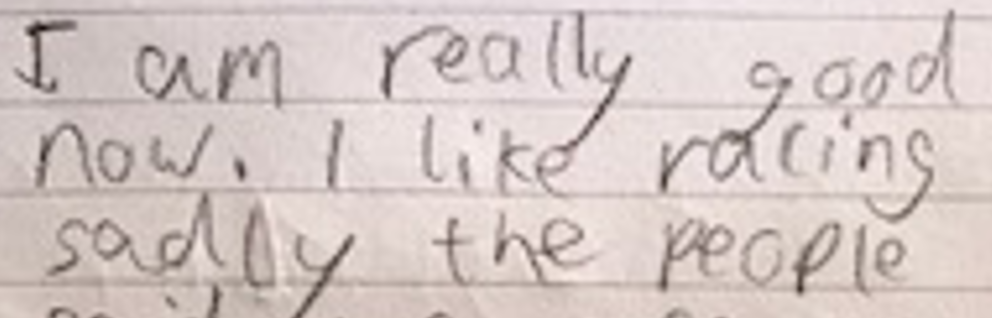 I am really good
now. I like racing
sadly the people